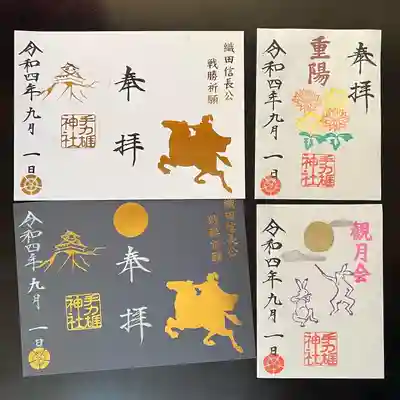 織田信長公
戦勝祈願
奉拝
手力雄
神社
令和四年九月一日
奉拝
重陽
手力雄
神社
令和四年九月一日
織田信長公
戦勝祈願
奉拝
手力雄
神社
令和四年九月一日
観月会
手力雄
神社
令和四年九月一日